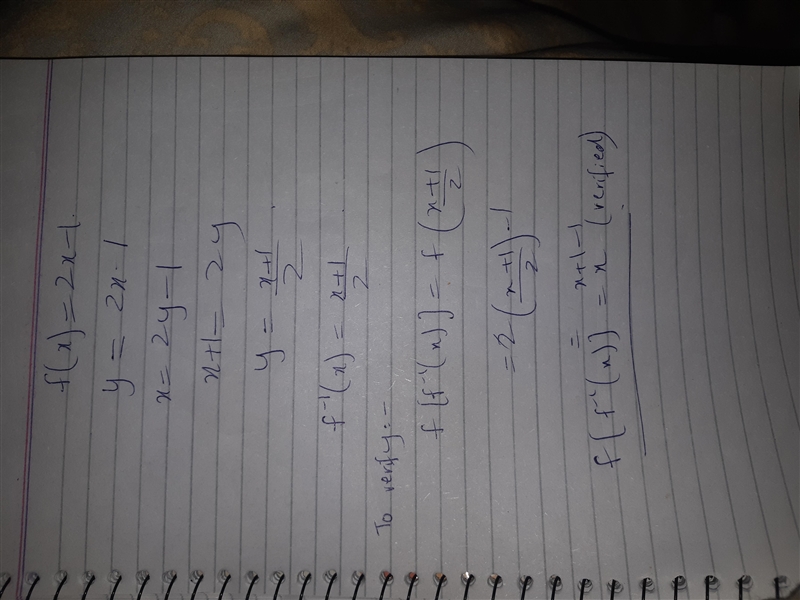 f(x) = 2x-1
y = 2x-1
x = 2y-1
x+1 = 2y
y = x+1/2
f⁻¹(x) = x+1/2
To verify:-
f[f⁻¹(x)] = f(x+1/2)
= 2(x+1/2)-1
= x+1-1
f[f⁻¹(x)] = x (verified)